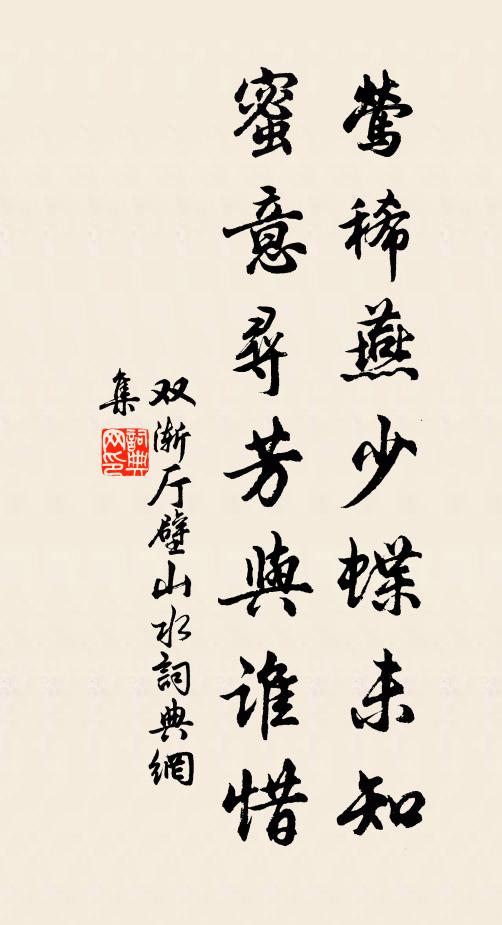 莺稀燕少蝶未知
蜜意尋芳與誰惜
双渐厅壁山水詞典網
集
詞典
网印